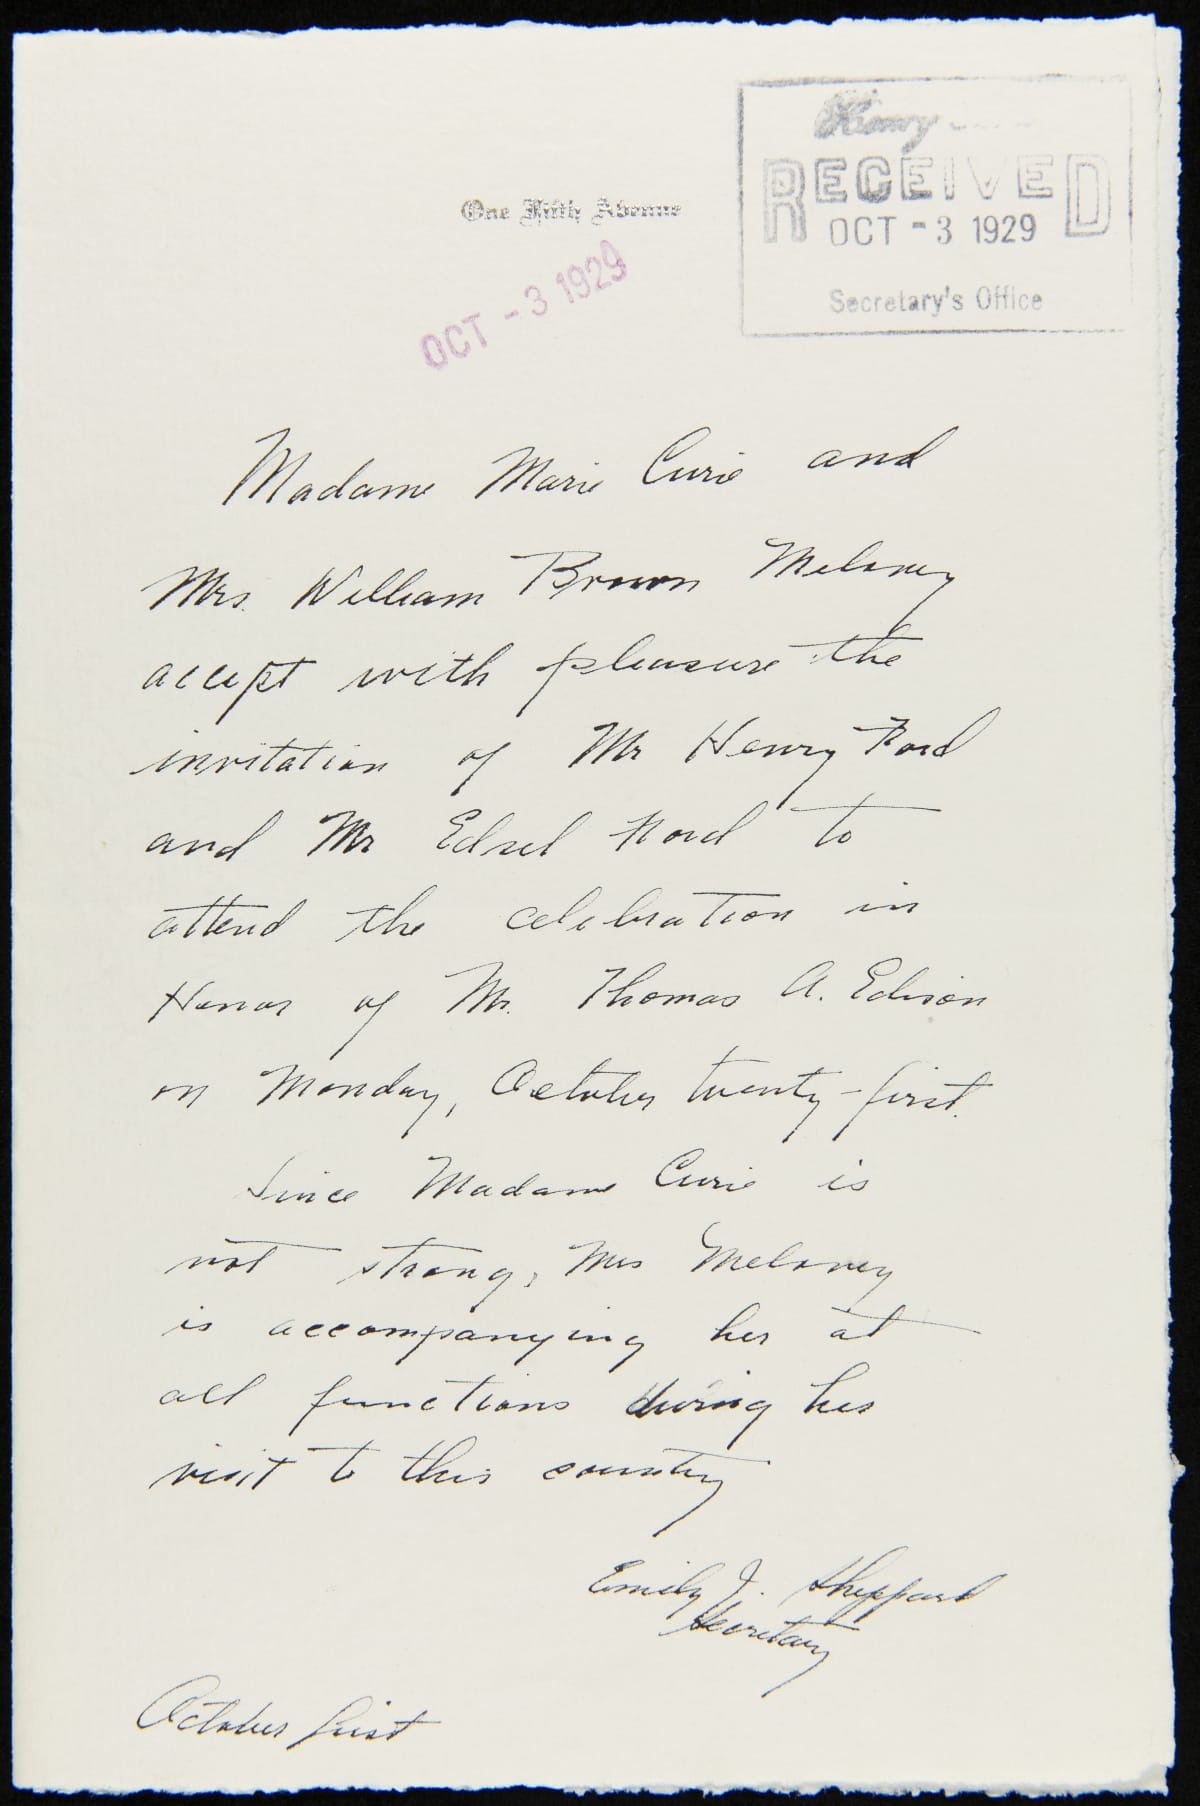 Henry
RECEIVED
OCT - 3 1929
Secretary's Office
One Fifth Avenue
OCT - 3 1929
Madame Marie Curie and
Mrs. William Brown Meloney
accept with pleasure the
invitation of Mr Henry Ford
and Mr Edsel Ford to
attend the celebration in
Honor of Mr. Thomas A. Edison
on Monday, October twenty-first.
Since Madame Curie is
not strong, Mrs Meloney
is accompanying her at
all functions during her
visit to this country
Emily J. Sheppard
Secretary
October first